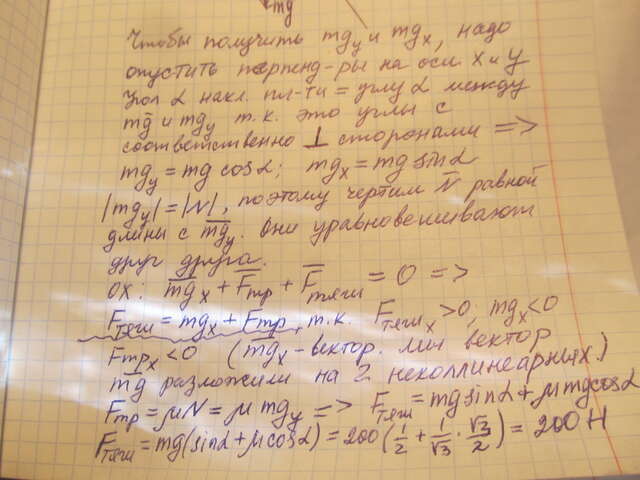 mg
Чтобы получить mgy и mgx, надо
опустить перпенд-ры на оси x и y
Угол α накл. пл-ти = углу α между
mg̅ и mgy т.к. это углы с
соответственно ⊥ сторонами =>
mgy = mg cosα; mgx = mg sinα
|mgy| = |N|, поэтому чертим N̅ равной
длины с m̅g̅y. Они уравновешивают
друг друга.
ox: m̅g̅x + F̅тр + F̅тяги = 0 =>
Fтяги = mgx + Fтр, т.к. Fтягиx > 0, mgx < 0
Fтрx < 0 (m̅g̅x - вектор. Мы вектор
m̅g̅ разложили на 2 неколлинеарных)
Fтр = μN = μmgy => Fтяги = mg sinα + μmg cosα
Fтяги = mg(sinα + μ cosα) = 200(1/2 + 1/√3 · √3/2) = 200 Н